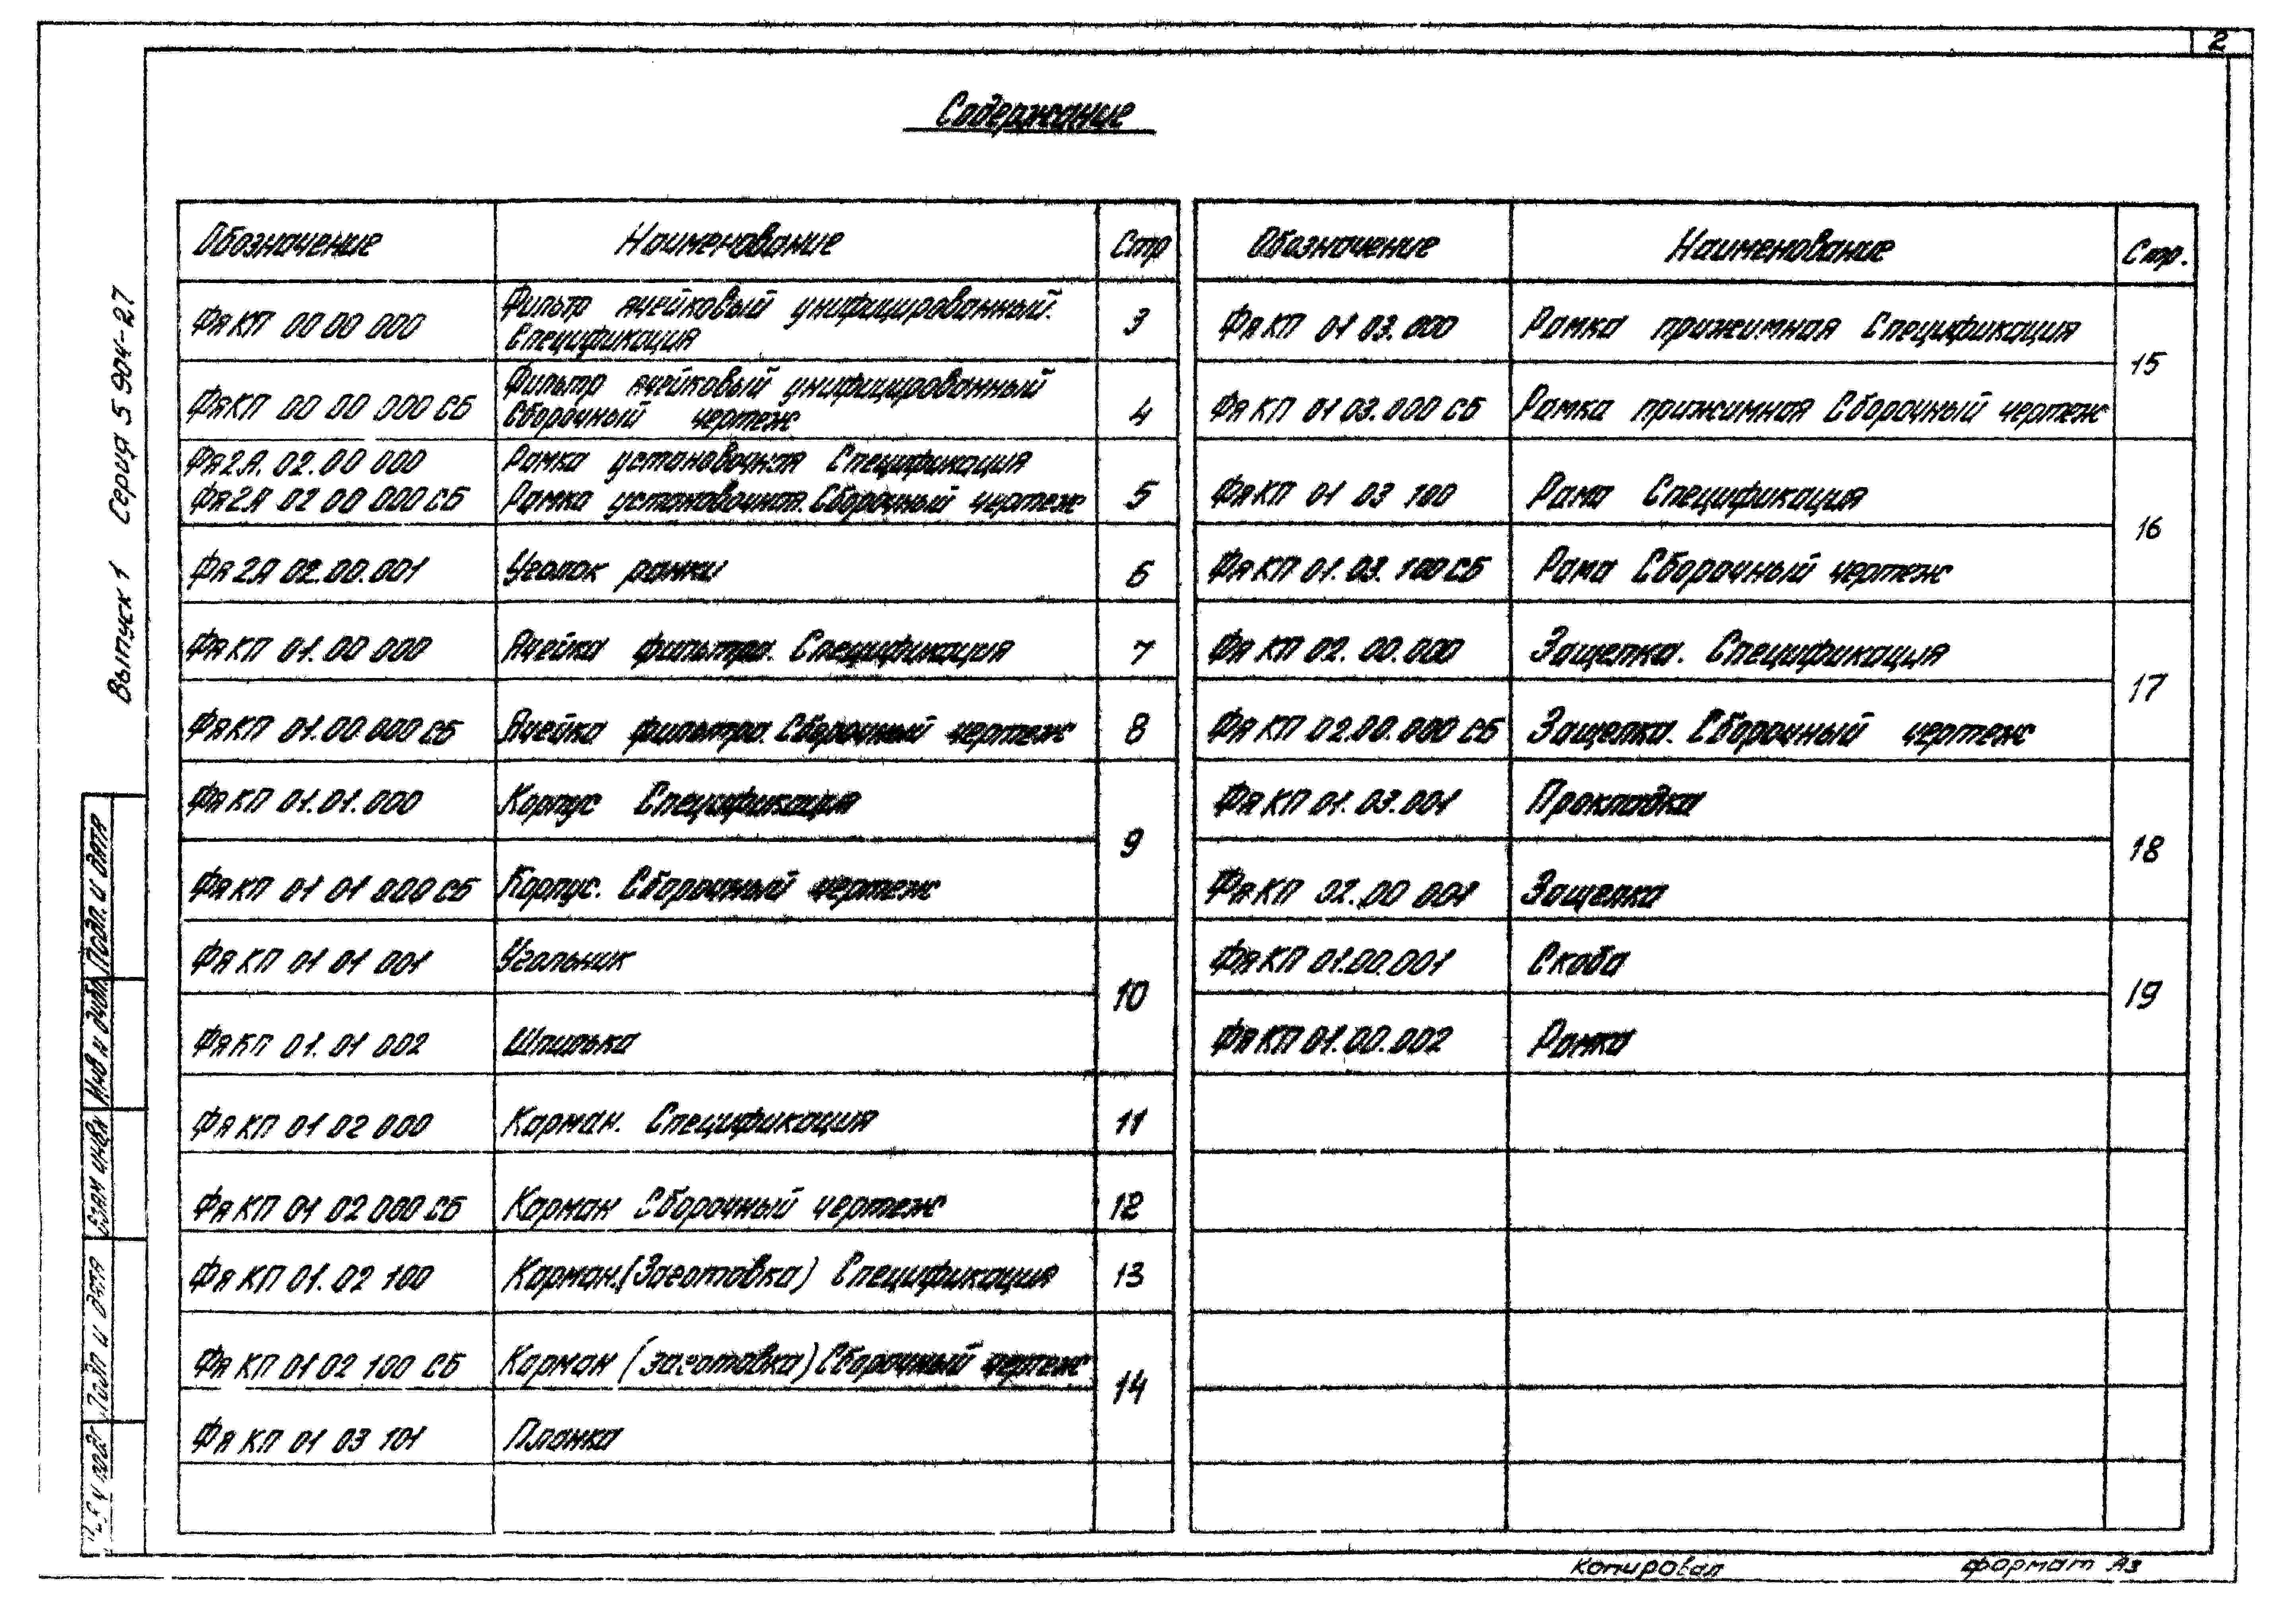 2
Содержание
Обозначение Наименование Стр
ФяКП 00 00 000 Фильтр ячейковый унифицированный. 3
Спецификация
ФяКП 00 00 000 СБ Фильтр ячейковый унифицированный 4
Сборочный чертеж
Фя2Я. 02. 00 000 Рамка установочная Спецификация
Фя2Я 02 00 000 СБ Рамка установочная. Сборочный чертеж 5
Фя2Я 02.00.001 Уголок рамки 6
ФяКП 01.00 000 Ячейка фильтра. Спецификация 7
ФяКП 01.00.000 СБ Ячейка фильтра. Сборочный чертеж 8
ФяКП 01.01.000 Корпус Спецификация
9
ФяКП 01 01 000 СБ Корпус. Сборочный чертеж
ФяКП 01 01 001 Угольник
10
ФяКП 01. 01 002 Шпилька
ФяКП 01 02 000 Карман. Спецификация 11
ФяКП 01 02 000 СБ Карман Сборочный чертеж 12
ФяКП 01. 02 100 Карман.(Заготовка) Спецификация 13
ФяКП 01 02 100 СБ Карман (заготовка) Сборочный чертеж
14
ФяКП 01 03 101 Планка
Обозначение Наименование Стр.
ФяКП 01 03.000 Рамка прижимная Спецификация
15
ФяКП 01 03.000 СБ Рамка прижимная Сборочный чертеж
ФяКП 01 03 100 Рама Спецификация
16
ФяКП 01. 03. 100 СБ Рама Сборочный чертеж
ФяКП 02. 00.000 Защелка. Спецификация
17
ФяКП 02.00.000 СБ Защелка. Сборочный чертеж
ФяКП 01. 03.001 Прокладка
18
ФяКП 02. 00 001 Защелка
ФяКП 01.00.001 Скоба
19
ФяКП 01.00.002 Рамка
Выпуск 1 Серия 5 904-27
Подп. и дата
Инв н дубл
Взам инв н
Подп и дата
Копировал формат А3